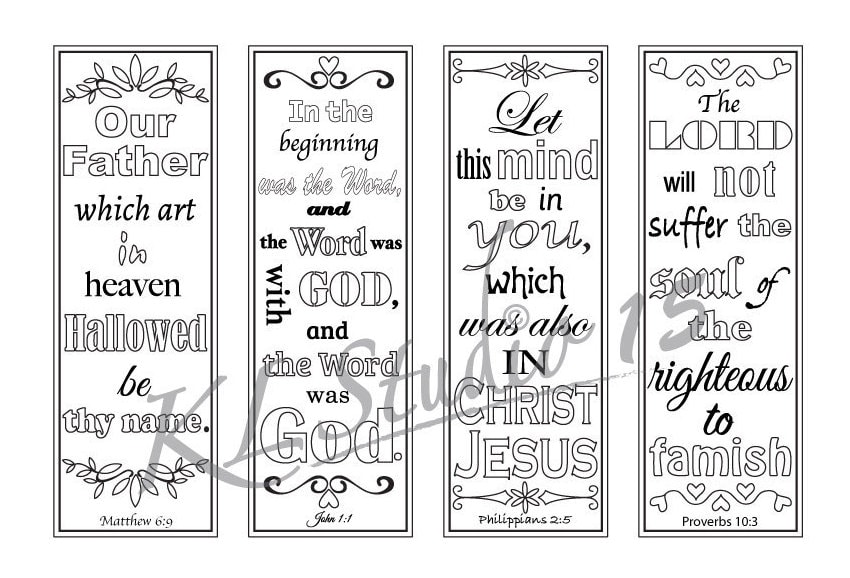 Our
Father
which art
in
heaven
Hallowed
be
thy name.
Matthew 6:9
In the
beginning
was the Word,
and
the Word was
with GOD,
and
the Word
was
God.
John 1:1
Let
this mind
be in
you,
which
was also
IN
CHRIST
JESUS
Philippians 2:5
The
LORD
will not
suffer the
soul of
the
righteous
to
famish
Proverbs 10:3
KL Studio 15
©